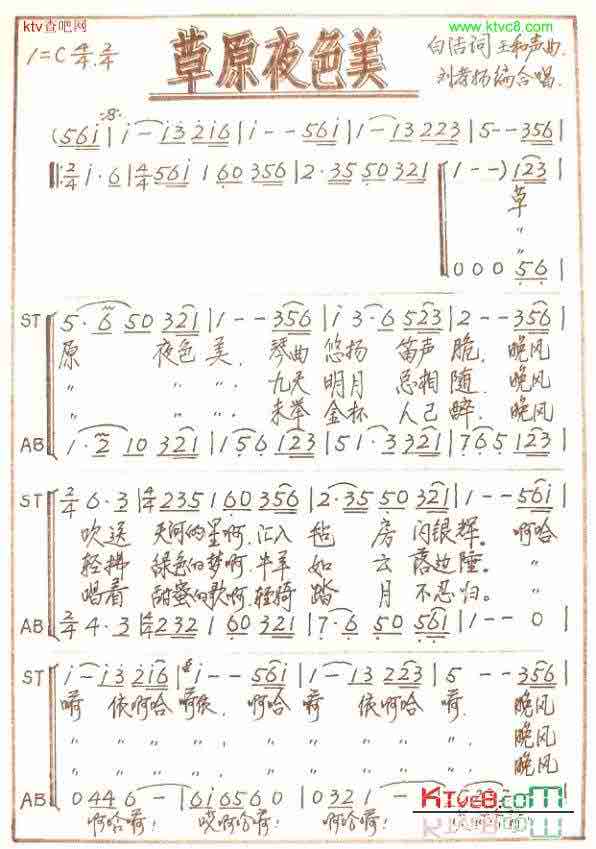 ktv查吧网
www.ktvc8.com
1=C 4/4 2/4
草原夜色美
白洁词 王和声曲
刘孝扬编合唱
(5 6 1 | 1 - 1 3 2 1 6 | 1 - - 5 6 1 | 1 - 1 3 2 2 3 | 5 - - 3 5 6 |
2/4 1 · 6 | 4/4 5 6 1 1 6 0 3 5 6 | 2 · 3 5 5 0 3 2 1 | 1 - -) 1 2 3 |
草
〃
〃
0 0 0 5 6 |
ST 5 · 6 5 0 3 2 1 | 1 - - 3 5 6 | 1 3 · 6 5 2 3 | 2 - - 3 5 6 |
原 夜色美, 琴曲悠扬 笛声脆, 晚风
〃 〃 〃 〃. 九天明月 总相随. 晚风
〃 〃 〃 〃. 未举金杯 人已醉. 晚风
AB 1 · 2 1 0 3 2 1 | 1 5 6 1 2 3 | 5 1 · 3 3 2 1 | 7 6 5 1 2 3 |
ST 2/4 6 · 3 | 4/4 2 3 5 1 6 0 3 5 6 | 2 · 3 5 5 0 3 2 1 | 1 - - 5 6 1 |
吹送 天河的星啊, 汇入毡房闪银辉。 啊哈
轻拂 绿色的梦啊, 牛羊如云落边陲。 〃
唱着 甜蜜的歌啊, 轻骑踏月不忍归。 〃
AB 2/4 4 · 3 | 4/4 2 2 3 2 1 6 0 3 2 1 | 7 · 6 5 0 5 6 1 | 1 - - 0 |
ST 1 - 1 · 3 2 1 6 | 1 - - 5 6 1 | 1 - 1 3 2 2 3 | 5 - - 3 5 6 |
嗬 依啊哈嗬依, 啊哈嗬 依啊哈嗬, 晚风
〃 〃 〃 〃 〃 〃 〃 晚风
〃 〃 〃 〃 〃 〃 〃 晚风
AB 0 4 4 6 - | 6 1 6 5 6 0 | 0 3 2 1 - |
啊哈嗬! 哎啊哈嗬! 啊哈嗬!
KTvc8.com